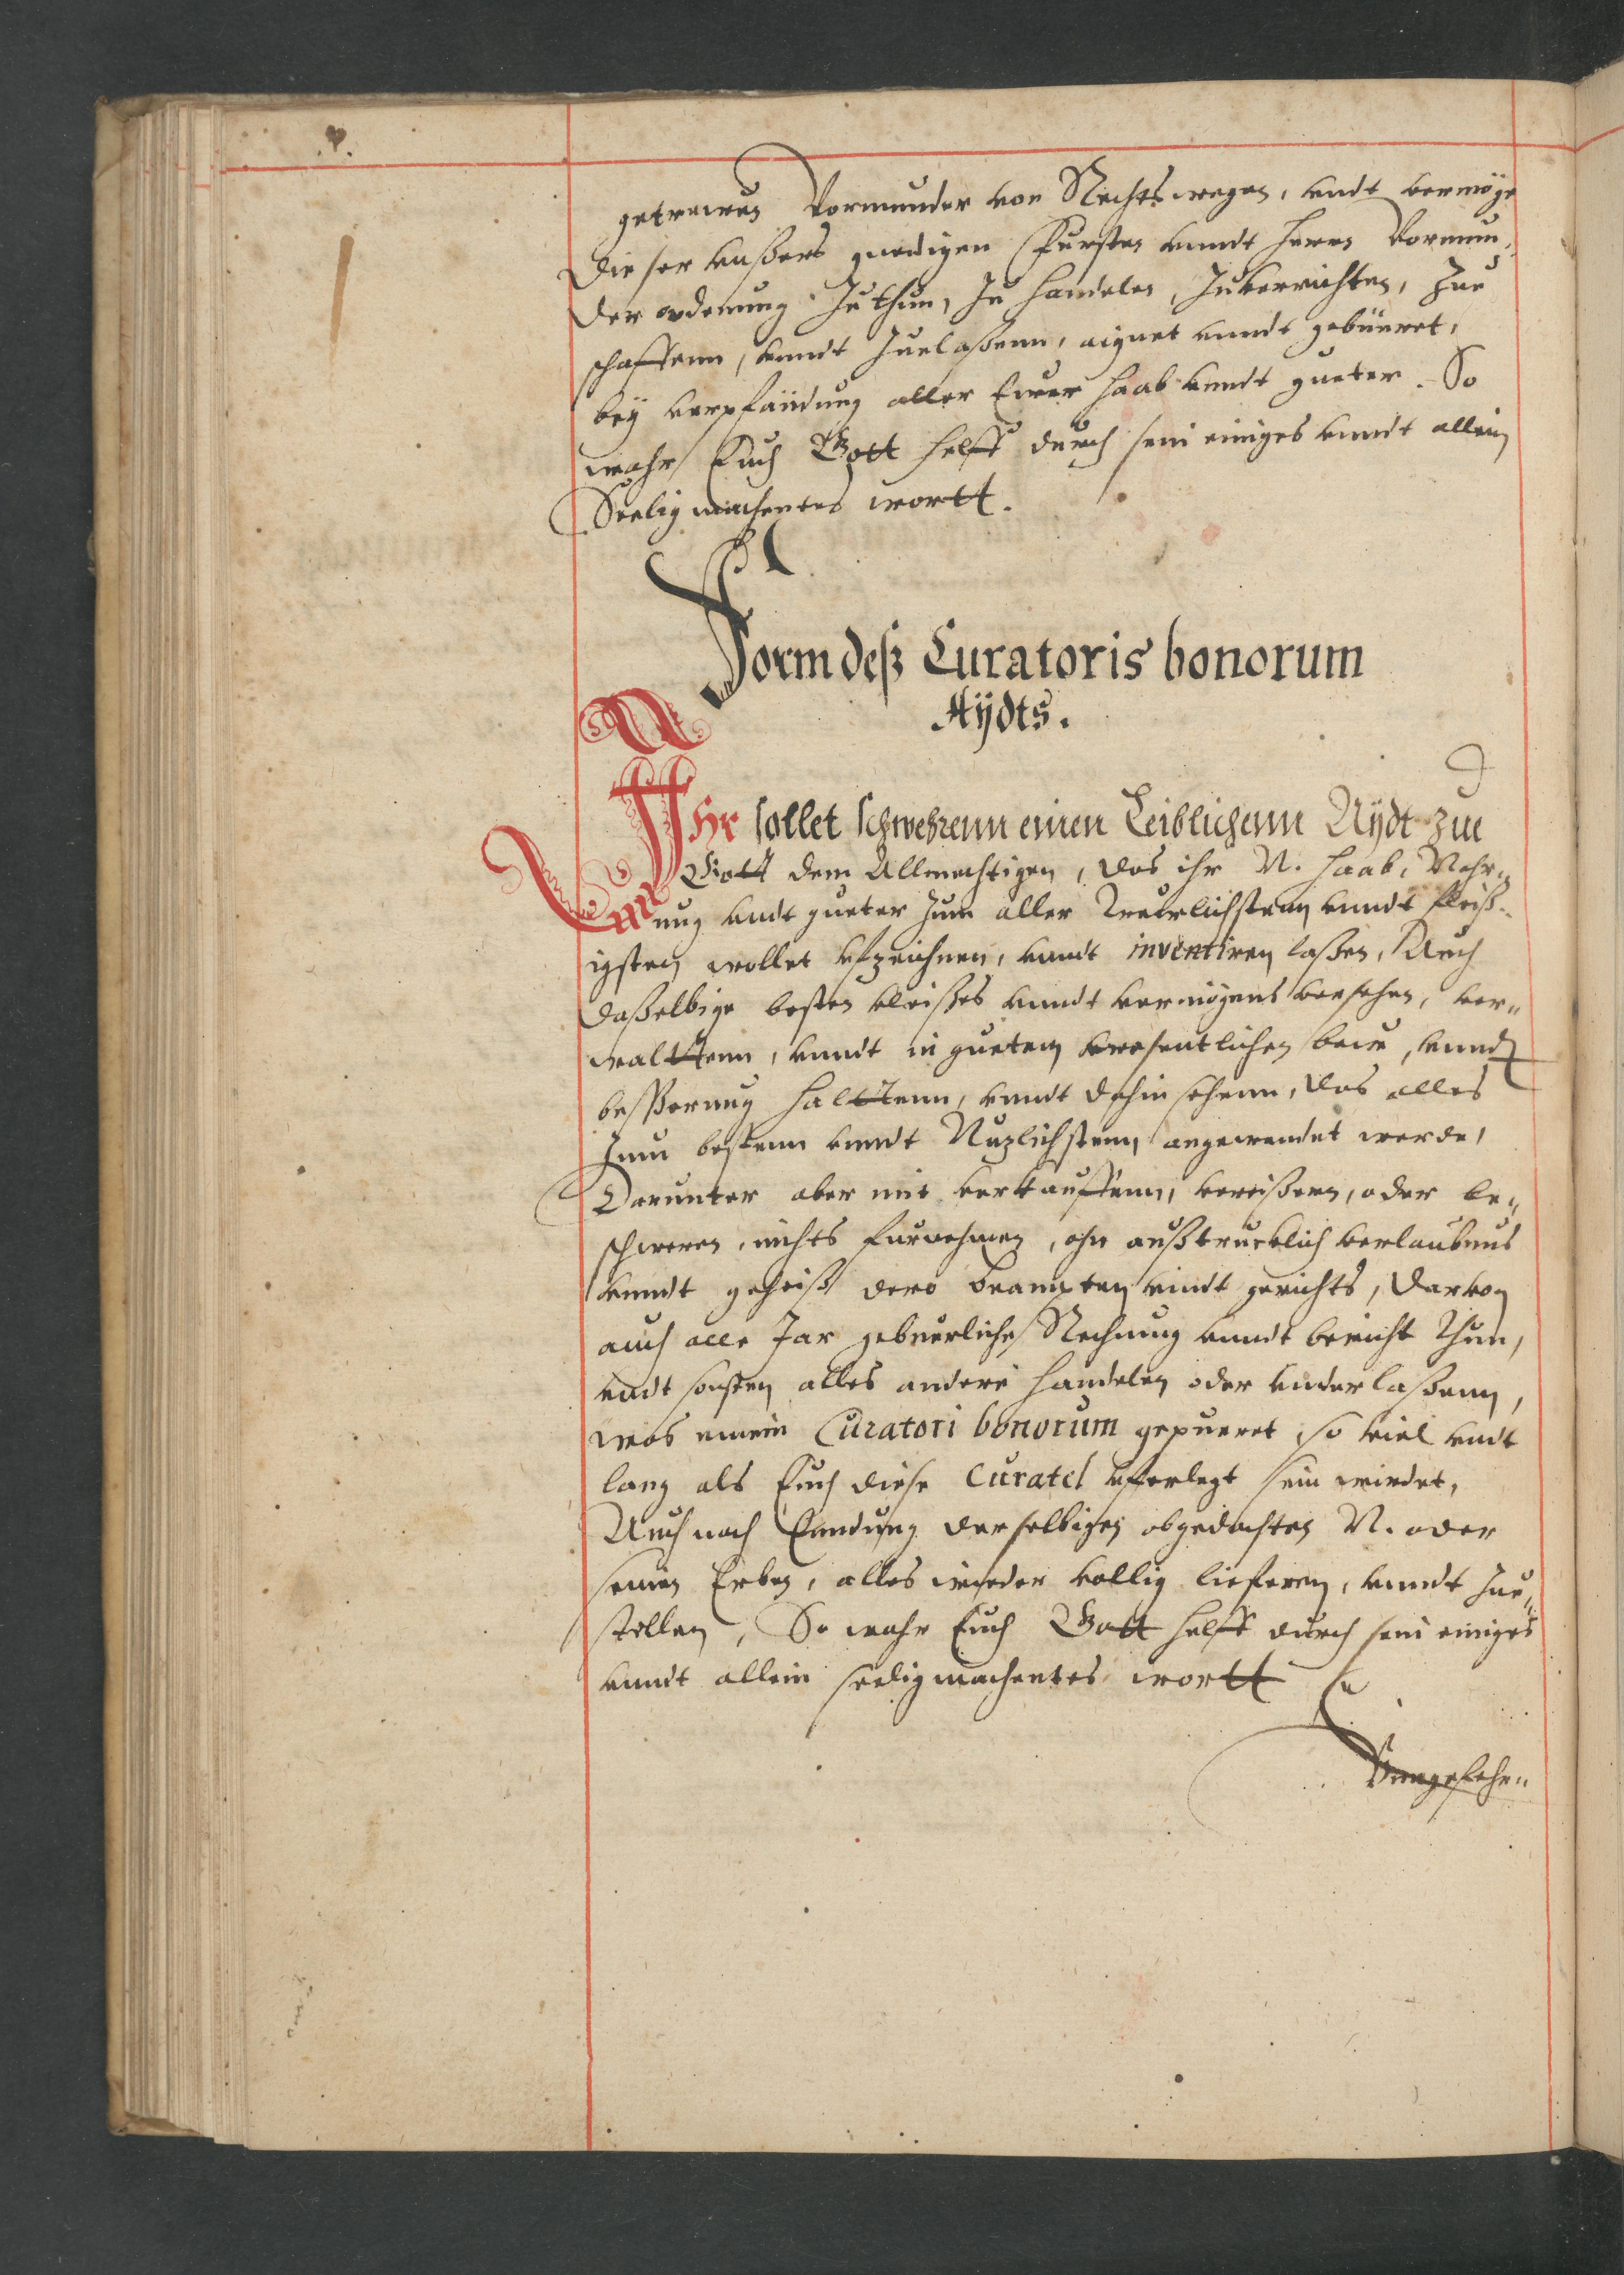 getrewen Vormunder von Rechts wegen, undt vermöge
dieser unßers gnedigen Fursten unndt herrn Vormun,
der ordenung zu thun, zu handelen, zuverrichten, zue
schaffenn, unndt zuelaßenn, aignet unndt gebüeret,
bey verpfändung aller Ewer haab unndt gueter. So
wahr Euch Gott helff durch sein einiges unndt allein
Seelig machentes wortt.
Form deß Curatoris bonorum
Aÿdts.
IHr sollet schwehrenn einen Leiblichenn Aÿdt zue
Gott dem Allmechtigen, das ihr N. haab, Nahr„
ung undt gueter zum aller Trewlichstenn unndt fleiß„
igsten wollet uffzeichnen, unndt inventiren laßen, Auch
daßelbige besten vleißes unndt vermögens versehen, ver„
walttenn, unndt in guetem wesentlichen baw, unnd
beßerung halttenn, unndt dahin sehenn, das alles
zum bestenn unndt Nuzlichstenn angewendet werde,
Darunter aber mit verkauffenn, vereißern, oder be„
schweren, nichts furnehmen, ohn außtrucklich verlaubnus
unndt geheiß dero beampten undt gerichts, darvon
auch alle Jar gebuerliche Rechnung unndt bericht thun,
undt sonsten alles andere handelen oder underlaßenn,
was einem Curatori bonorum gepueret, so viel undt
lang als Euch diese Curatel ufferlegt sein wirdet,
Auch nach Enndung derselbigen obgedachten N. oder
seinen Erben, alles wieder vollig lieferen, unndt zue„
stellen, So wahr Euch Gott helff durch sein einiges
unndt allein seeligmachentes wortt
Vnngefehr„